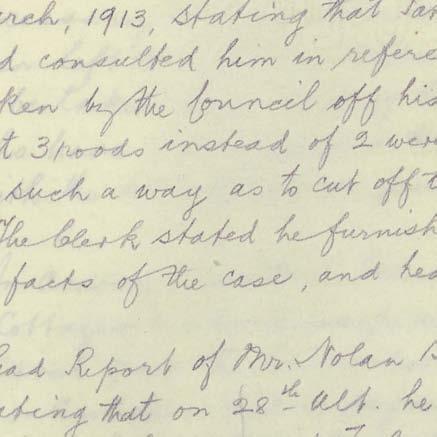 arch, 1913, stating that
d consulted him in refere
ken by the Council off his
t 3 roods instead of 2 were
such a way as to cut off t
The Clerk stated he furnish
facts of the case, and hea
ead Report of Mr. Nolan
ating that on 28th Ult. he